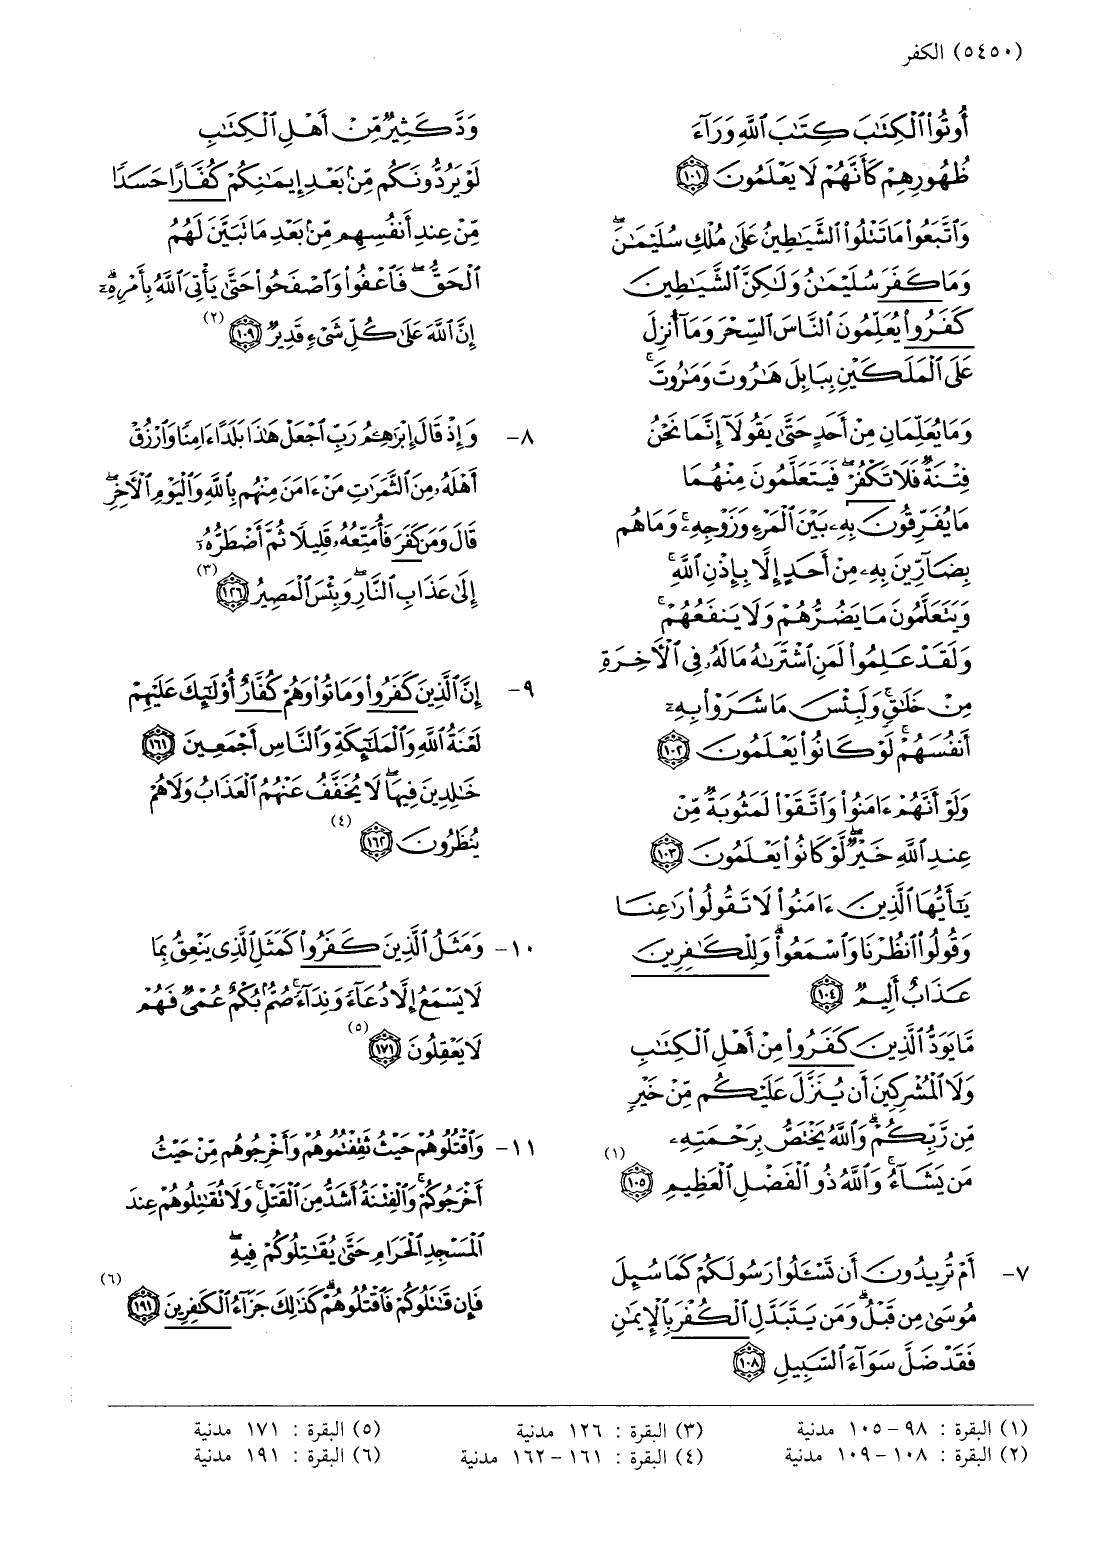 (٥٤٥٠) الكفر
أُوتُواْ ٱلْكِتَٰبَ كِتَٰبَ ٱللَّهِ وَرَآءَ
ظُهُورِهِمْ كَأَنَّهُمْ لَا يَعْلَمُونَ ﴿١٠١﴾
وَٱتَّبَعُواْ مَا تَتْلُواْ ٱلشَّيَٰطِينُ عَلَىٰ مُلْكِ سُلَيْمَٰنَ ۖ
وَمَا كَفَرَ سُلَيْمَٰنُ وَلَٰكِنَّ ٱلشَّيَٰطِينَ
كَفَرُواْ يُعَلِّمُونَ ٱلنَّاسَ ٱلسِّحْرَ وَمَآ أُنزِلَ
عَلَى ٱلْمَلَكَيْنِ بِبَابِلَ هَٰرُوتَ وَمَٰرُوتَ ۚ
وَمَا يُعَلِّمَانِ مِنْ أَحَدٍ حَتَّىٰ يَقُولَآ إِنَّمَا نَحْنُ
فِتْنَةٌ فَلَا تَكْفُرْ ۖ فَيَتَعَلَّمُونَ مِنْهُمَا
مَا يُفَرِّقُونَ بِهِۦ بَيْنَ ٱلْمَرْءِ وَزَوْجِهِۦ ۚ وَمَا هُم
بِضَآرِّينَ بِهِۦ مِنْ أَحَدٍ إِلَّا بِإِذْنِ ٱللَّهِ ۚ
وَيَتَعَلَّمُونَ مَا يَضُرُّهُمْ وَلَا يَنفَعُهُمْ ۚ
وَلَقَدْ عَلِمُواْ لَمَنِ ٱشْتَرَىٰهُ مَا لَهُۥ فِى ٱلْأَخِرَةِ
مِنْ خَلَٰقٍ ۚ وَلَبِئْسَ مَا شَرَوْاْ بِهِۦٓ
أَنفُسَهُمْ ۚ لَوْ كَانُواْ يَعْلَمُونَ ﴿١٠٢﴾
وَلَوْ أَنَّهُمْ ءَامَنُواْ وَٱتَّقَوْاْ لَمَثُوبَةٌ مِّنْ
عِندِ ٱللَّهِ خَيْرٌ ۖ لَّوْ كَانُواْ يَعْلَمُونَ ﴿١٠٣﴾
يَٰٓأَيُّهَا ٱلَّذِينَ ءَامَنُواْ لَا تَقُولُواْ رَٰعِنَا
وَقُولُواْ ٱنظُرْنَا وَٱسْمَعُواْ ۗ وَلِلْكَٰفِرِينَ
عَذَابٌ أَلِيمٌ ﴿١٠٤﴾
مَّا يَوَدُّ ٱلَّذِينَ كَفَرُواْ مِنْ أَهْلِ ٱلْكِتَٰبِ
وَلَا ٱلْمُشْرِكِينَ أَن يُنَزَّلَ عَلَيْكُم مِّنْ خَيْرٍ
مِّن رَّبِّكُمْ ۗ وَٱللَّهُ يَخْتَصُّ بِرَحْمَتِهِۦ
مَن يَشَآءُ ۚ وَٱللَّهُ ذُو ٱلْفَضْلِ ٱلْعَظِيمِ ﴿١٠٥﴾ (١)
٧- أَمْ تُرِيدُونَ أَن تَسْـَٔلُواْ رَسُولَكُمْ كَمَا سُئِلَ
مُوسَىٰ مِن قَبْلُ ۗ وَمَن يَتَبَدَّلِ ٱلْكُفْرَ بِٱلْإِيمَٰنِ
فَقَدْ ضَلَّ سَوَآءَ ٱلسَّبِيلِ ﴿١٠٨﴾
وَدَّ كَثِيرٌ مِّنْ أَهْلِ ٱلْكِتَٰبِ
لَوْ يَرُدُّونَكُم مِّنۢ بَعْدِ إِيمَٰنِكُمْ كُفَّارًا حَسَدًا
مِّنْ عِندِ أَنفُسِهِم مِّنۢ بَعْدِ مَا تَبَيَّنَ لَهُمُ
ٱلْحَقُّ ۖ فَٱعْفُواْ وَٱصْفَحُواْ حَتَّىٰ يَأْتِىَ ٱللَّهُ بِأَمْرِهِۦٓ ۗ
إِنَّ ٱللَّهَ عَلَىٰ كُلِّ شَىْءٍ قَدِيرٌ ﴿١٠٩﴾ (٢)
٨- وَإِذْ قَالَ إِبْرَٰهِـۧمُ رَبِّ ٱجْعَلْ هَٰذَا بَلَدًا ءَامِنًا وَٱرْزُقْ
أَهْلَهُۥ مِنَ ٱلثَّمَرَٰتِ مَنْ ءَامَنَ مِنْهُم بِٱللَّهِ وَٱلْيَوْمِ ٱلْأَخِرِ ۖ
قَالَ وَمَن كَفَرَ فَأُمَتِّعُهُۥ قَلِيلًا ثُمَّ أَضْطَرُّهُۥٓ
إِلَىٰ عَذَابِ ٱلنَّارِ ۖ وَبِئْسَ ٱلْمَصِيرُ ﴿١٢٦﴾ (٣)
٩- إِنَّ ٱلَّذِينَ كَفَرُواْ وَمَاتُواْ وَهُمْ كُفَّارٌ أُوْلَٰٓئِكَ عَلَيْهِمْ
لَعْنَةُ ٱللَّهِ وَٱلْمَلَٰٓئِكَةِ وَٱلنَّاسِ أَجْمَعِينَ ﴿١٦١﴾
خَٰلِدِينَ فِيهَا ۖ لَا يُخَفَّفُ عَنْهُمُ ٱلْعَذَابُ وَلَا هُمْ
يُنظَرُونَ ﴿١٦٢﴾ (٤)
١٠- وَمَثَلُ ٱلَّذِينَ كَفَرُواْ كَمَثَلِ ٱلَّذِى يَنْعِقُ بِمَا
لَا يَسْمَعُ إِلَّا دُعَآءً وَنِدَآءً ۚ صُمٌّۢ بُكْمٌ عُمْىٌ فَهُمْ
لَا يَعْقِلُونَ ﴿١٧١﴾ (٥)
١١- وَٱقْتُلُوهُمْ حَيْثُ ثَقِفْتُمُوهُمْ وَأَخْرِجُوهُم مِّنْ حَيْثُ
أَخْرَجُوكُمْ ۚ وَٱلْفِتْنَةُ أَشَدُّ مِنَ ٱلْقَتْلِ ۚ وَلَا تُقَٰتِلُوهُمْ عِندَ
ٱلْمَسْجِدِ ٱلْحَرَامِ حَتَّىٰ يُقَٰتِلُوكُمْ فِيهِ ۖ
فَإِن قَٰتَلُوكُمْ فَٱقْتُلُوهُمْ ۗ كَذَٰلِكَ جَزَآءُ ٱلْكَٰفِرِينَ ﴿١٩١﴾ (٦)
(١) البقرة : ٩٨ - ١٠٥ مدنية
(٢) البقرة : ١٠٨ - ١٠٩ مدنية
(٣) البقرة : ١٢٦ مدنية
(٤) البقرة : ١٦١ - ١٦٢ مدنية
(٥) البقرة : ١٧١ مدنية
(٦) البقرة : ١٩١ مدنية